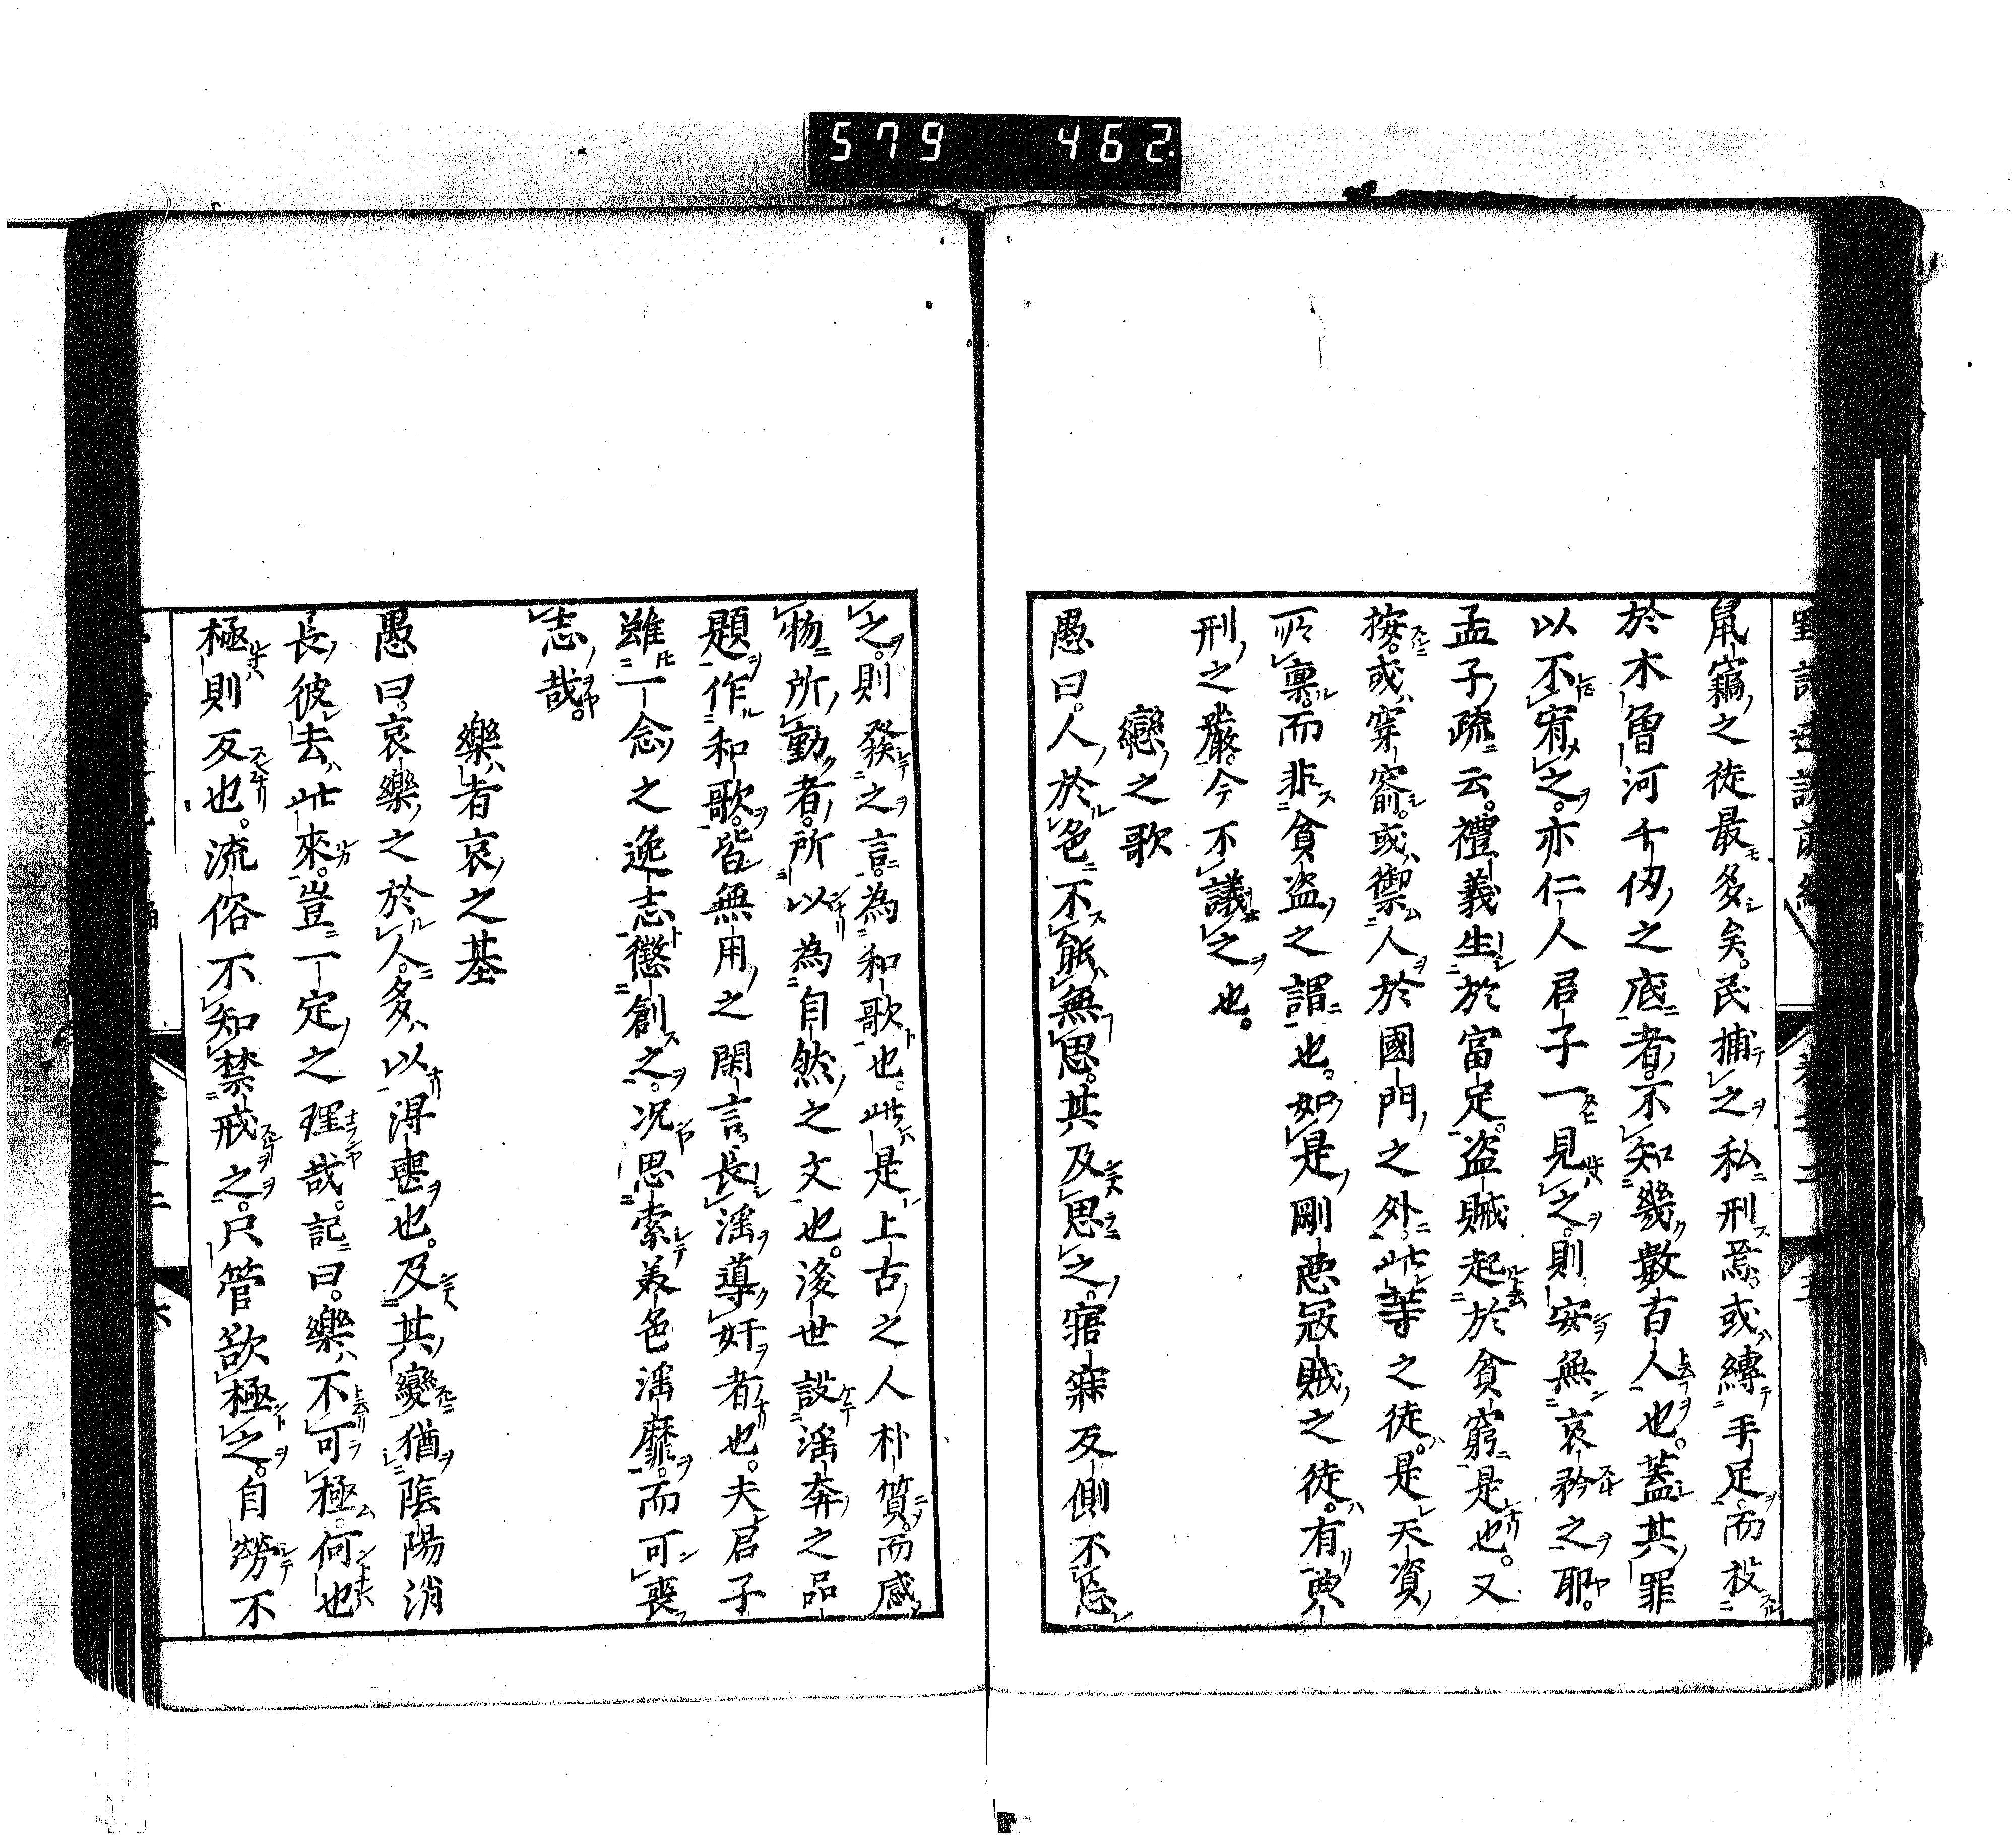 579 462
鼠竊之徒最多矣。民捕之私刑焉。或縛手足。而投
於木曾河千仭之底者。不知幾數百人也。蓋其罪
以不宥之。亦仁人君子一見之。則安無哀矜之耶。
孟子疏云。禮義生於富足。盜賊起於貧窮是也。又
按。或穿窬。或禦人於國門之外。此等之徒。是天資
所稟。而非貧盜之謂也。如是剛惡冦賊之徒。有典
刑之嚴。今不議之也。
戀之歌
愚曰。人於色不能無思。其及思之。寤寐反側不忘
之。則發之言。為和歌也。此是上古之人朴質。而感
物所動者。所以為自然之文也。後世設淫奔之品
題作和歌。皆無用之閑言。長淫導奸者也。夫君子
雖一念之逸志懲創之。况思索美色淫靡。而可喪
志哉。
樂者哀之基
愚曰。哀樂之於人。多以得喪也。及其變猶陰陽消
長彼去此來。豈一定之理哉。記曰。樂不可極。何也
極則反也。流俗不知禁戒之。只管欲極之。自勞不